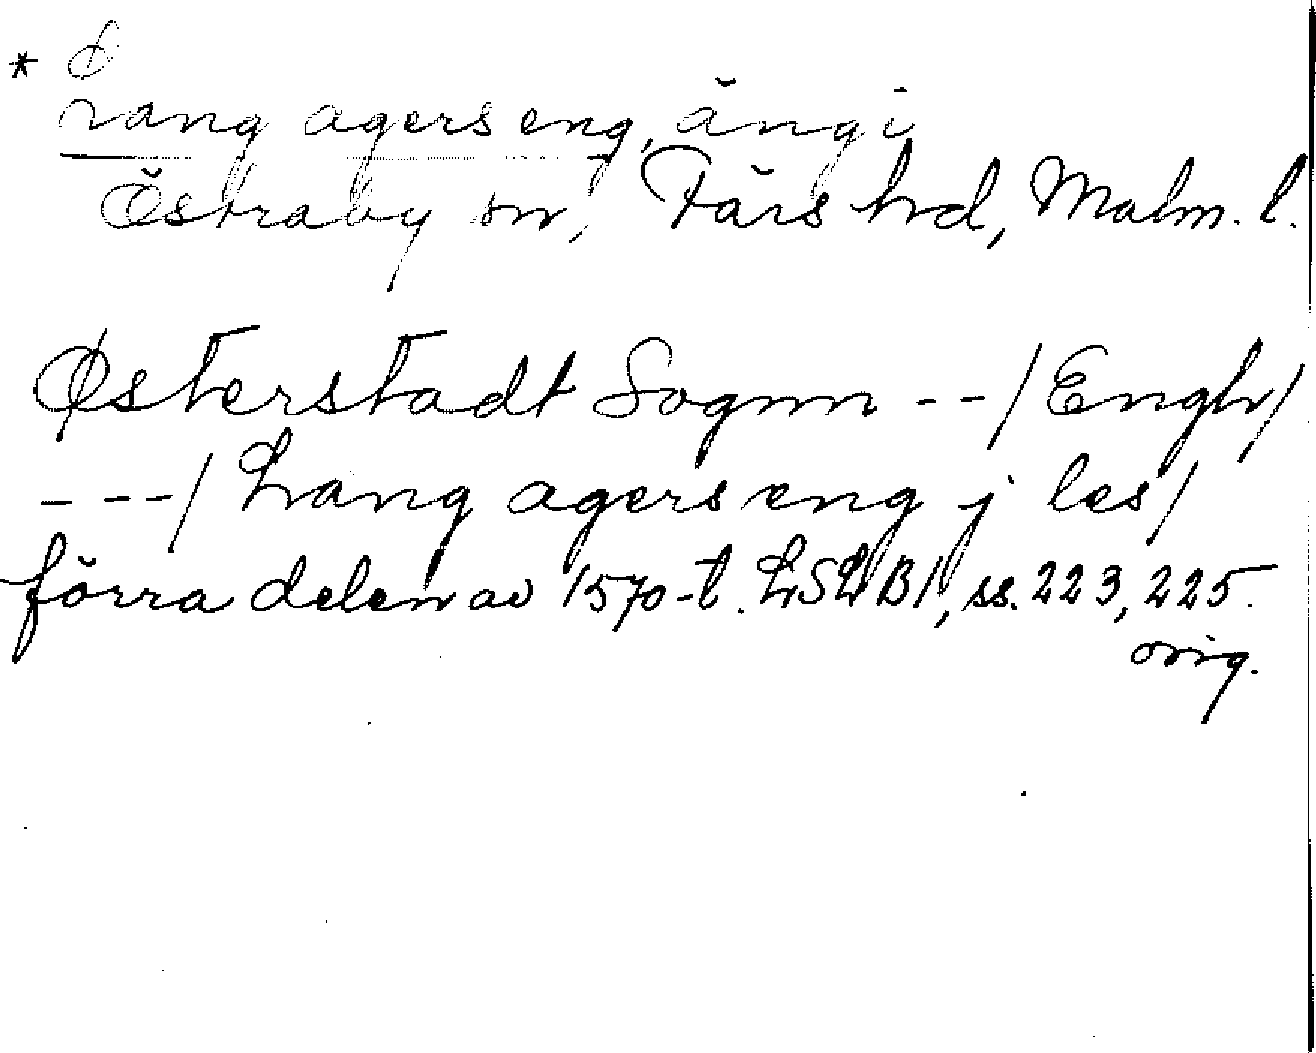 * Lang agers eng, äng i
Östraby sn, Färs hd, Malm. l.
Østerstadt Sognn -- / Engh /
--- / Lang agers eng j les /
förra delen av 1570-t. LSLB I, ss. 223, 225.
orig.